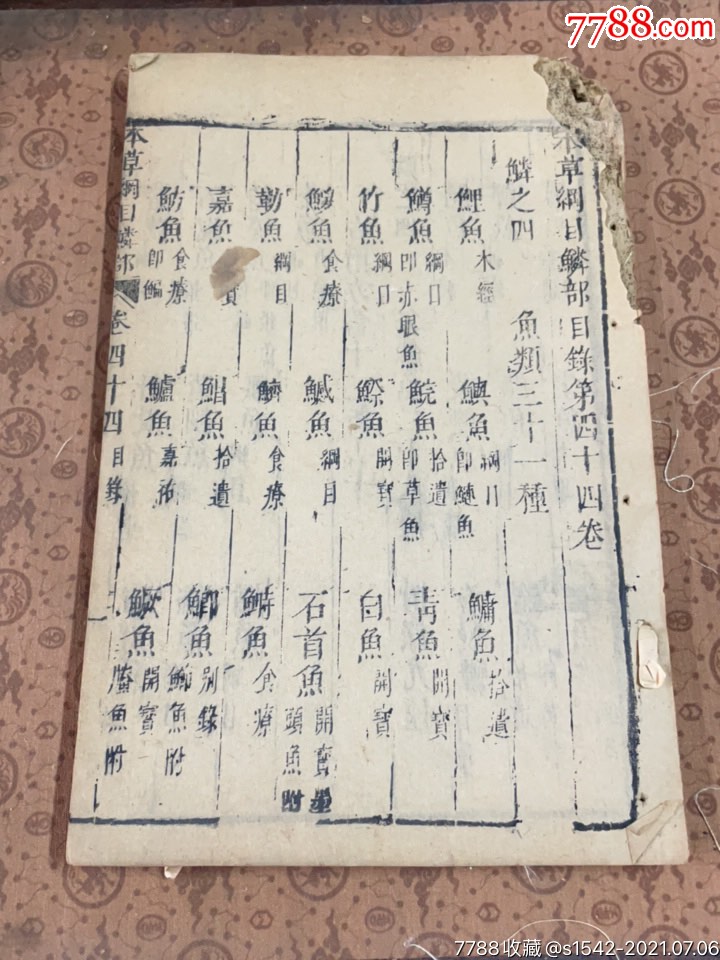 7788.com
本草綱目鱗部目錄第四十四卷
鱗之四 魚類三十一種
鯉魚 本經 鱮魚 綱目 即鰱魚 鱅魚 拾遺
鱒魚 綱目 即赤眼魚 鯇魚 拾遺 即草魚 青魚 開寶
竹魚 綱目 鯔魚 開寶 白魚 開寶
鯼魚 食療 鱤魚 綱目 石首魚 開寶 墨頭魚附
勒魚 綱目 鱭魚 食療 鰣魚 食療
嘉魚 寶 鯧魚 拾遺 鯽魚 別錄 鰤魚附
魴魚 食療 即鯿 鱸魚 嘉祐 鱖魚 開寶 䲍魚附
本草綱目鱗部 卷四十四 目錄
7788收藏@s1542-2021.07.06